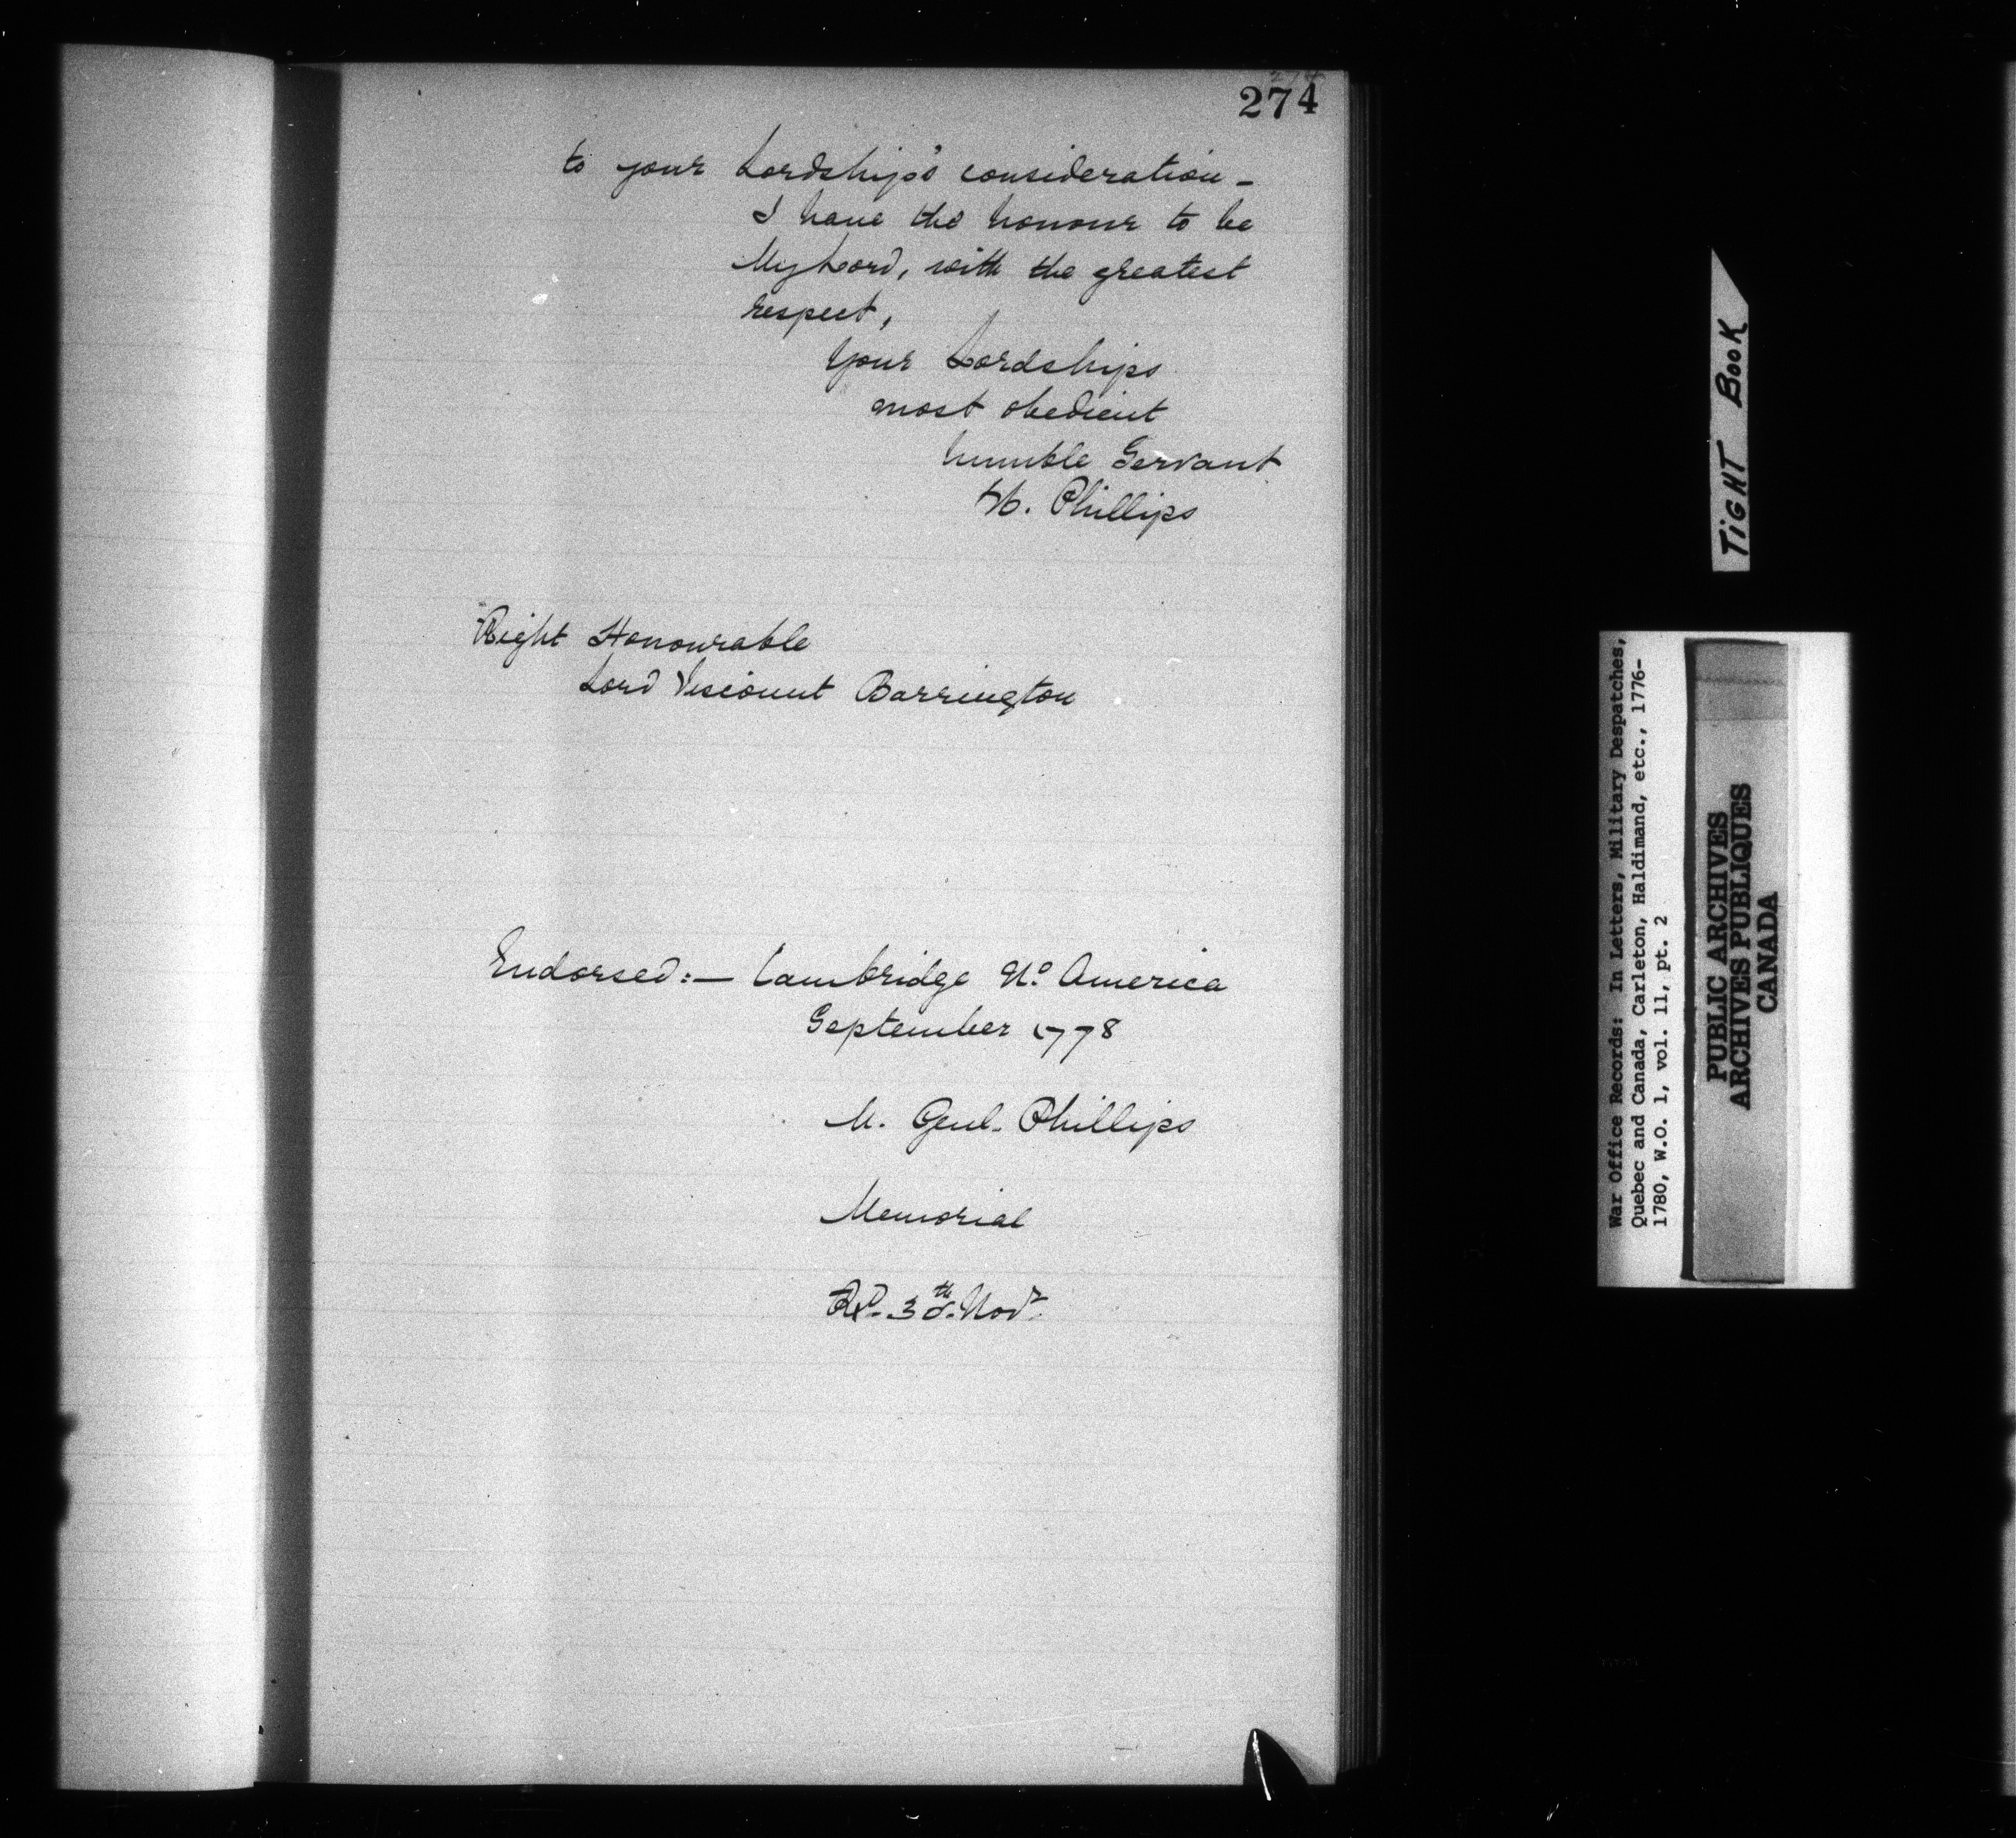 274
to your Lordship's consideration -
I have the honour to be
My Lord, with the greatest
respect,
Your Lordships
most obedient
humble Servant
W. Phillips
Right Honourable
Lord Viscount Barrington
Endorsed:— Cambridge No. America
September 1778
M. Genl. Phillips
Memorial
Rd. 30th. Novr.
TIGHT BOOK
War Office Records: In Letters, Military Despatches,
Quebec and Canada, Carleton, Haldimand, etc., 1776-
1780, W.O. 1, vol. 11, pt. 2
PUBLIC ARCHIVES
ARCHIVES PUBLIQUES
CANADA